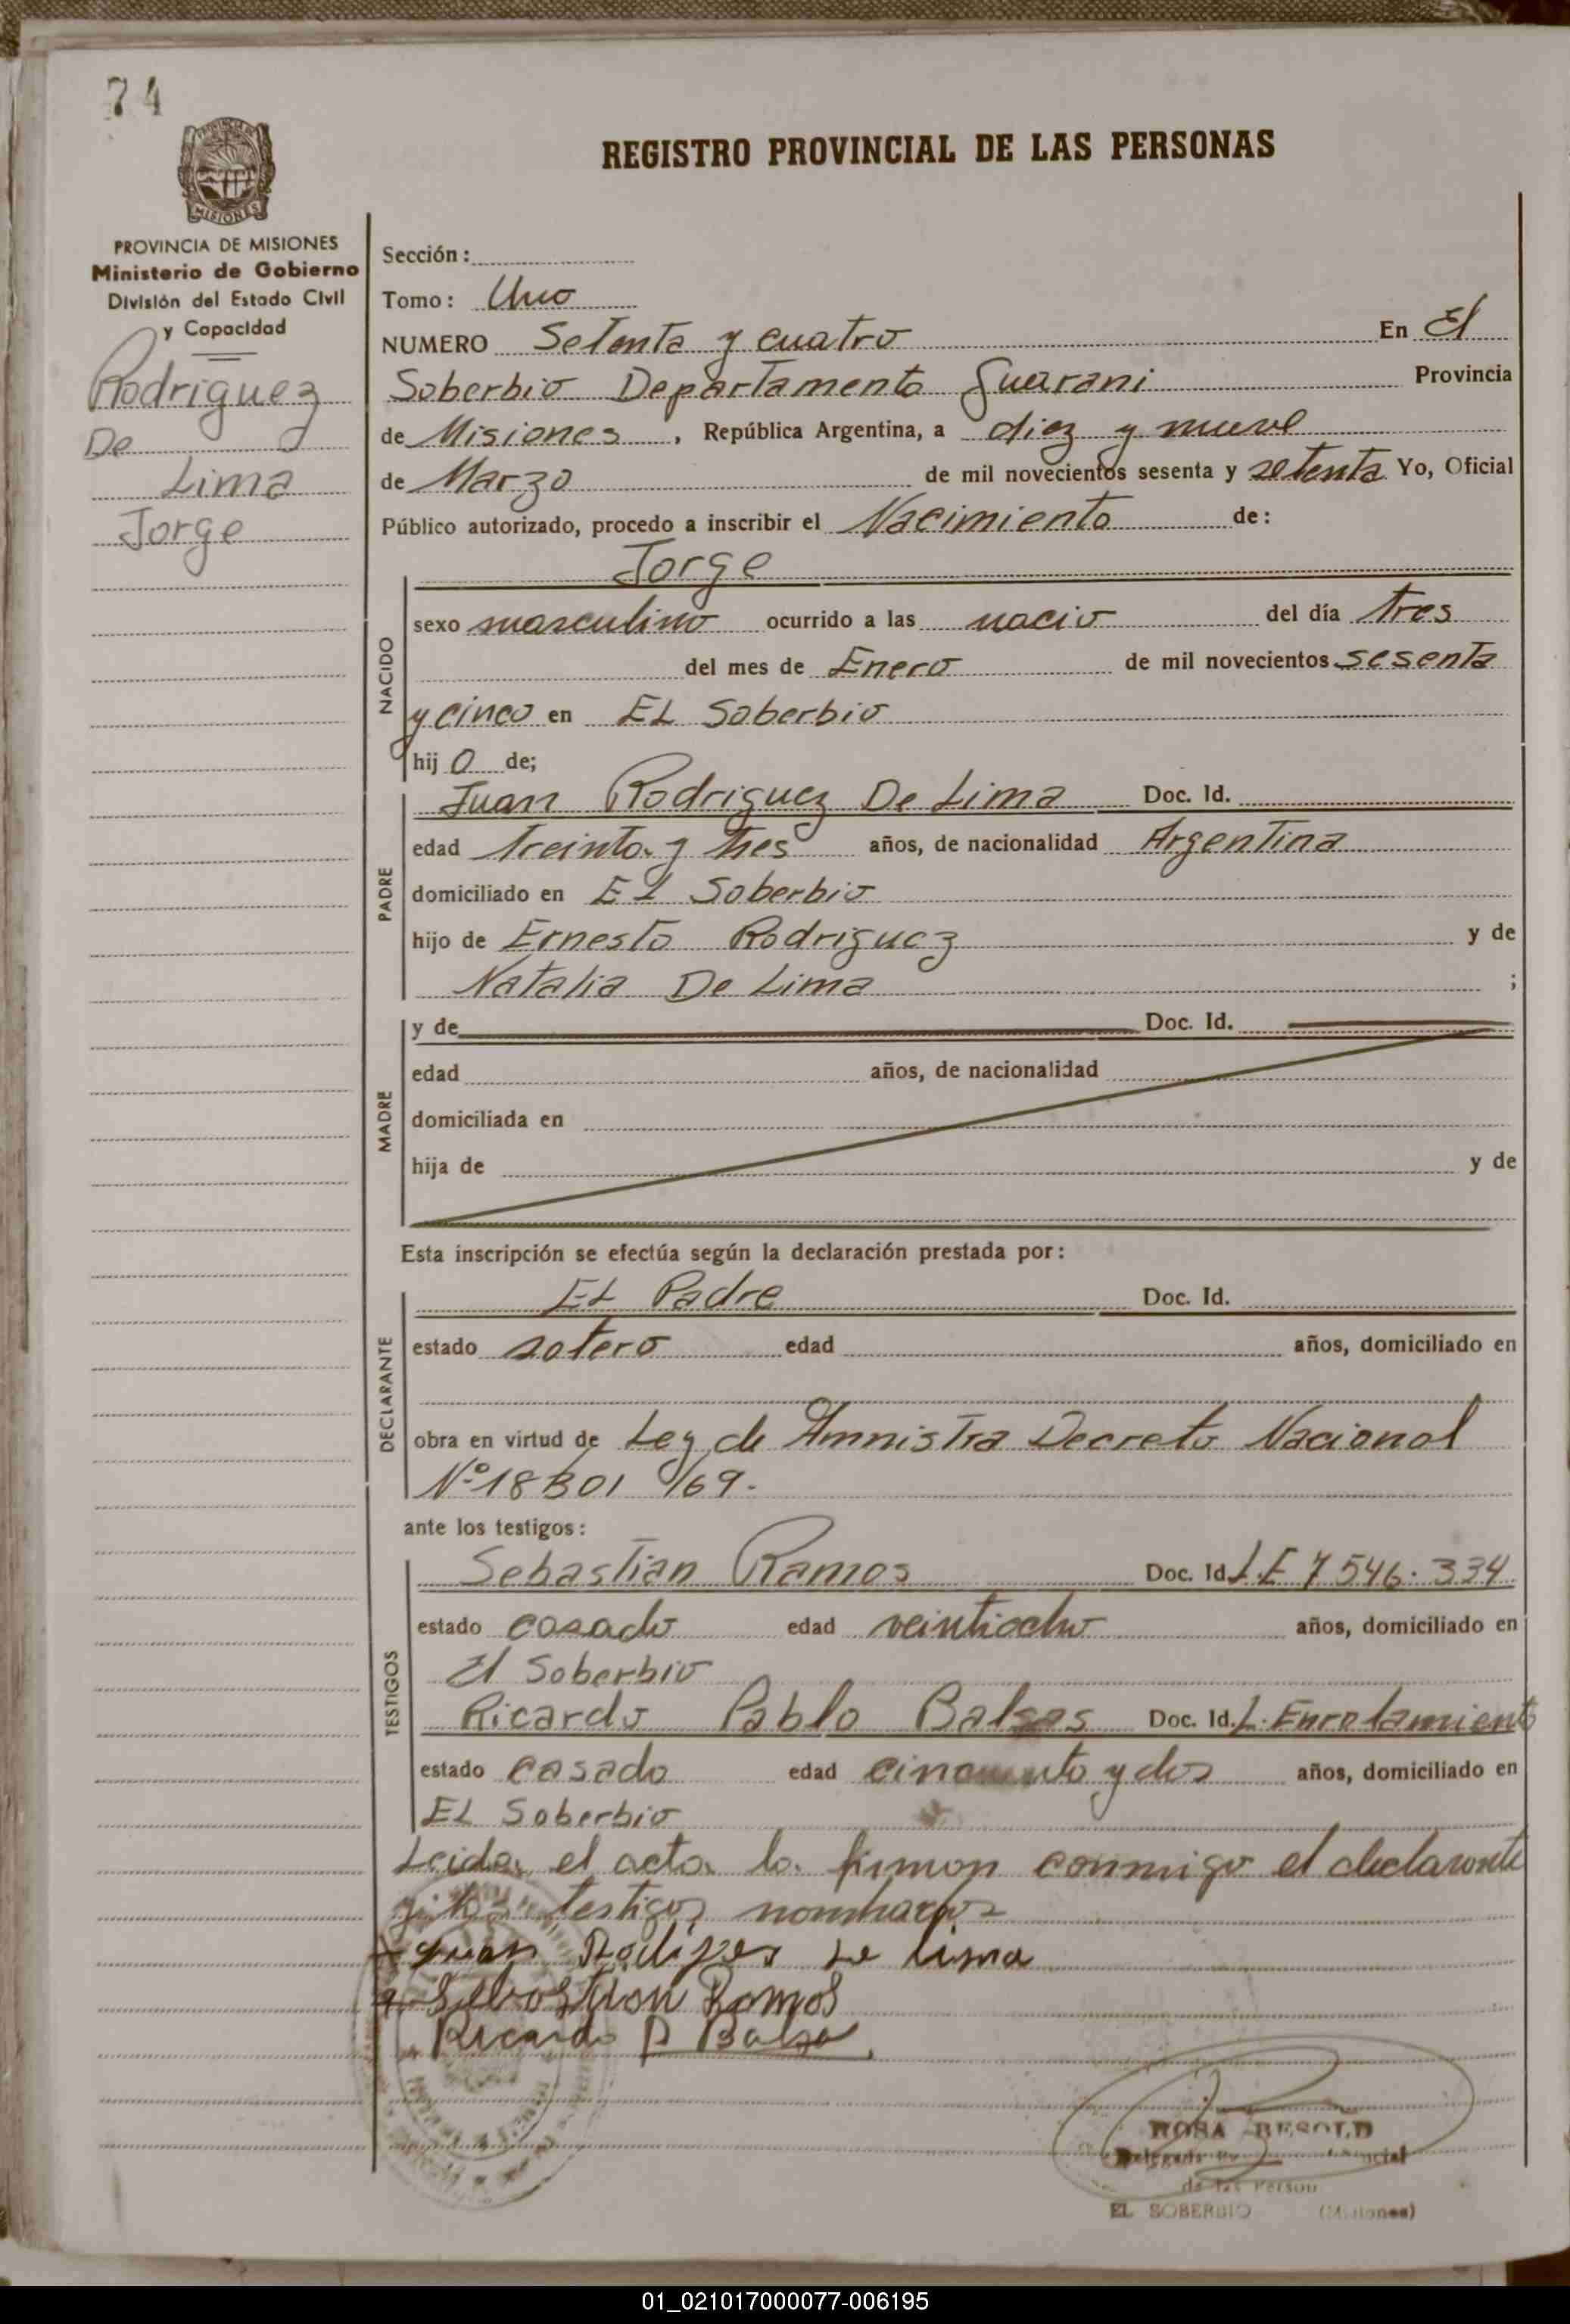 74
REGISTRO PROVINCIAL DE LAS PERSONAS
PROVINCIA DE MISIONES
Ministerio de Gobierno
División del Estado Civil
y Capacidad
Rodriguez
De
Lima
Jorge
Sección:
Tomo: Uno
NUMERO Setenta y cuatro En El
Soberbio Departamento Guarani Provincia
de Misiones, República Argentina, a diez y nueve
de Marzo de mil novecientos sesenta y setenta Yo, Oficial
Público autorizado, procedo a inscribir el Nacimiento de:
Jorge
NACIDO
sexo masculino ocurrido a las nacio del día tres
del mes de Enero de mil novecientos sesenta
y cinco en EL Soberbio
hijo de;
PADRE
Juan Rodriguez De Lima Doc. Id.
edad treinta y tres años, de nacionalidad Argentina
domiciliado en EL Soberbio
hijo de Ernesto Rodriguez y de
Natalia De Lima ;
MADRE
y de Doc. Id.
edad años, de nacionalidad
domiciliada en
hija de y de
Esta inscripción se efectúa según la declaración prestada por:
DECLARANTE
EL Padre Doc. Id.
estado sotero edad años, domiciliado en
obra en virtud de Ley de Amnistia Decreto Nacional
Nº 18301/69.
ante los testigos:
TESTIGOS
Sebastian Ramos Doc. Id. L.E 7.546.334
estado casado edad veintiocho años, domiciliado en
El Soberbio
Ricardo Pablo Balsas Doc. Id. L. Enrolamiento
estado casado edad cincuenta y dos años, domiciliado en
EL Soberbio
Leida el acta la firman conmigo el declarante
testigos nombrados
Juan Rodriges De lima
Sebastian Ramos
Ricardo P Balsa
ROSA BESOLD
de las Person
EL SOBERBIO (Misiones)
01_021017000077-006195